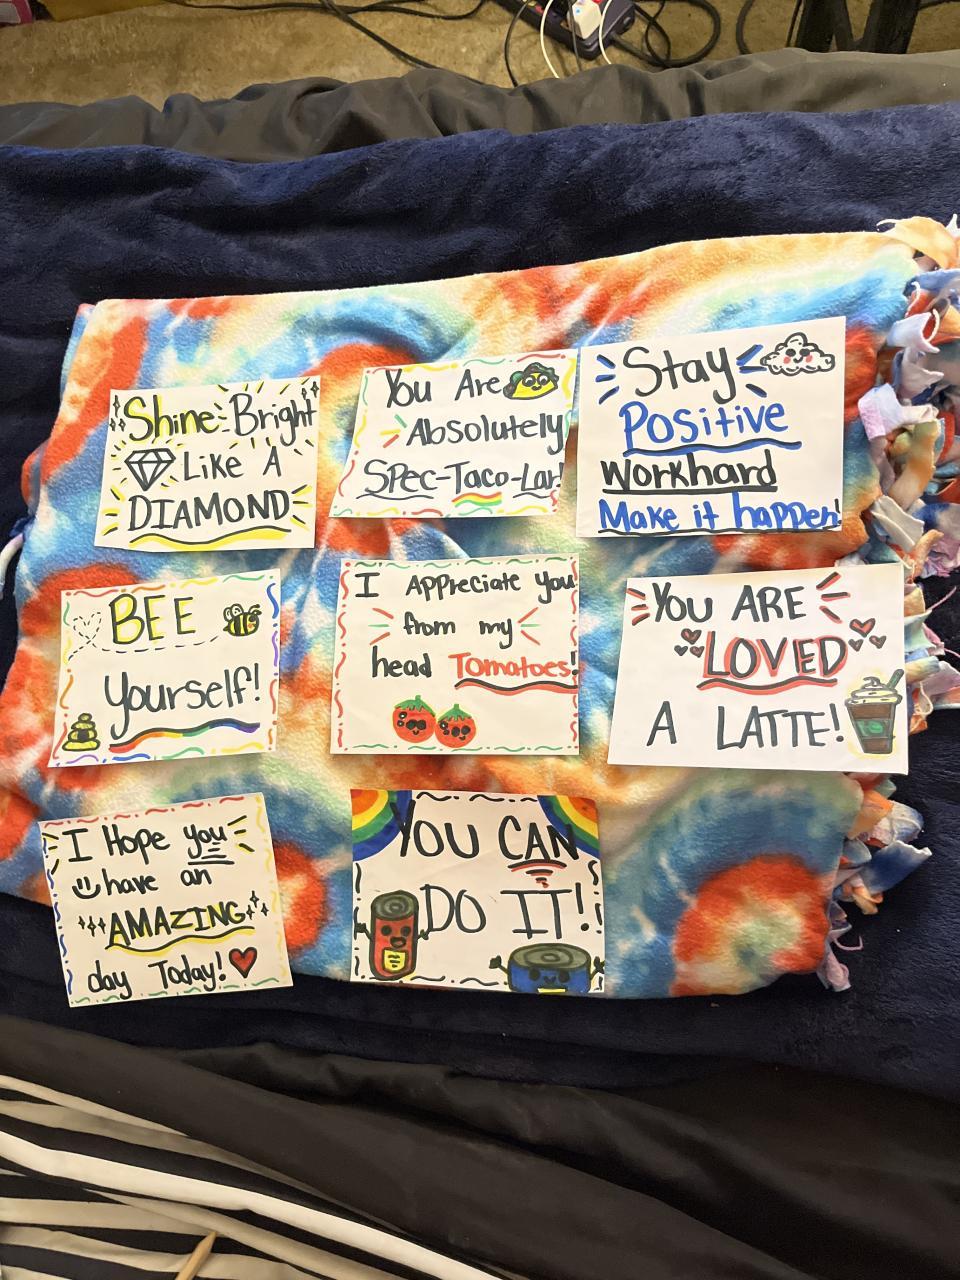 Shine Bright
Like A
DIAMOND
You Are
Absolutely
Spec-Taco-Lar!
Stay
Positive
Workhard
Make it happen!
BEE
yourself!
I Appreciate you
from my
head Tomatoes!
YOU ARE
LOVED
A LATTE!
I Hope you
have an
AMAZING
day Today!
YOU CAN
DO IT!